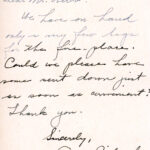 Dear Mr.
We have on hand
only a very few logs
for the fire place.
Could we please have
some sent down just
as soon as convenient?
Thank you.
Sincerely,